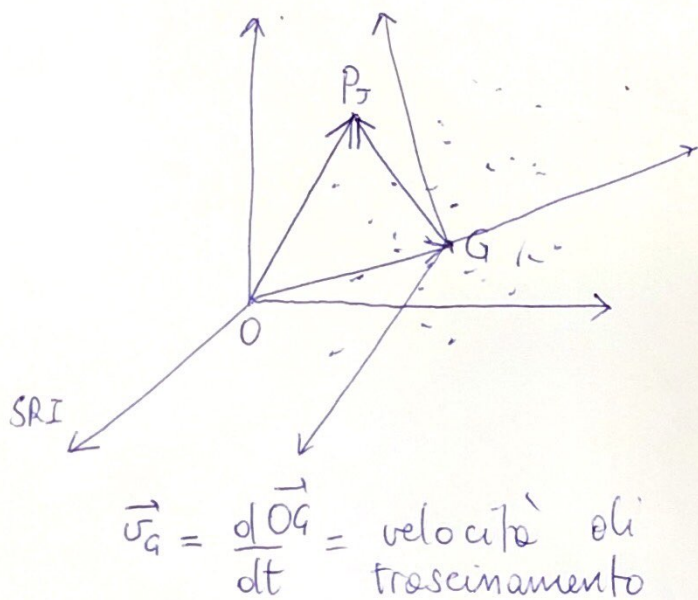 P_J
G
O
SRI
\vec{v}_G = \frac{d\vec{OG}}{dt} = velocità di trascinamento